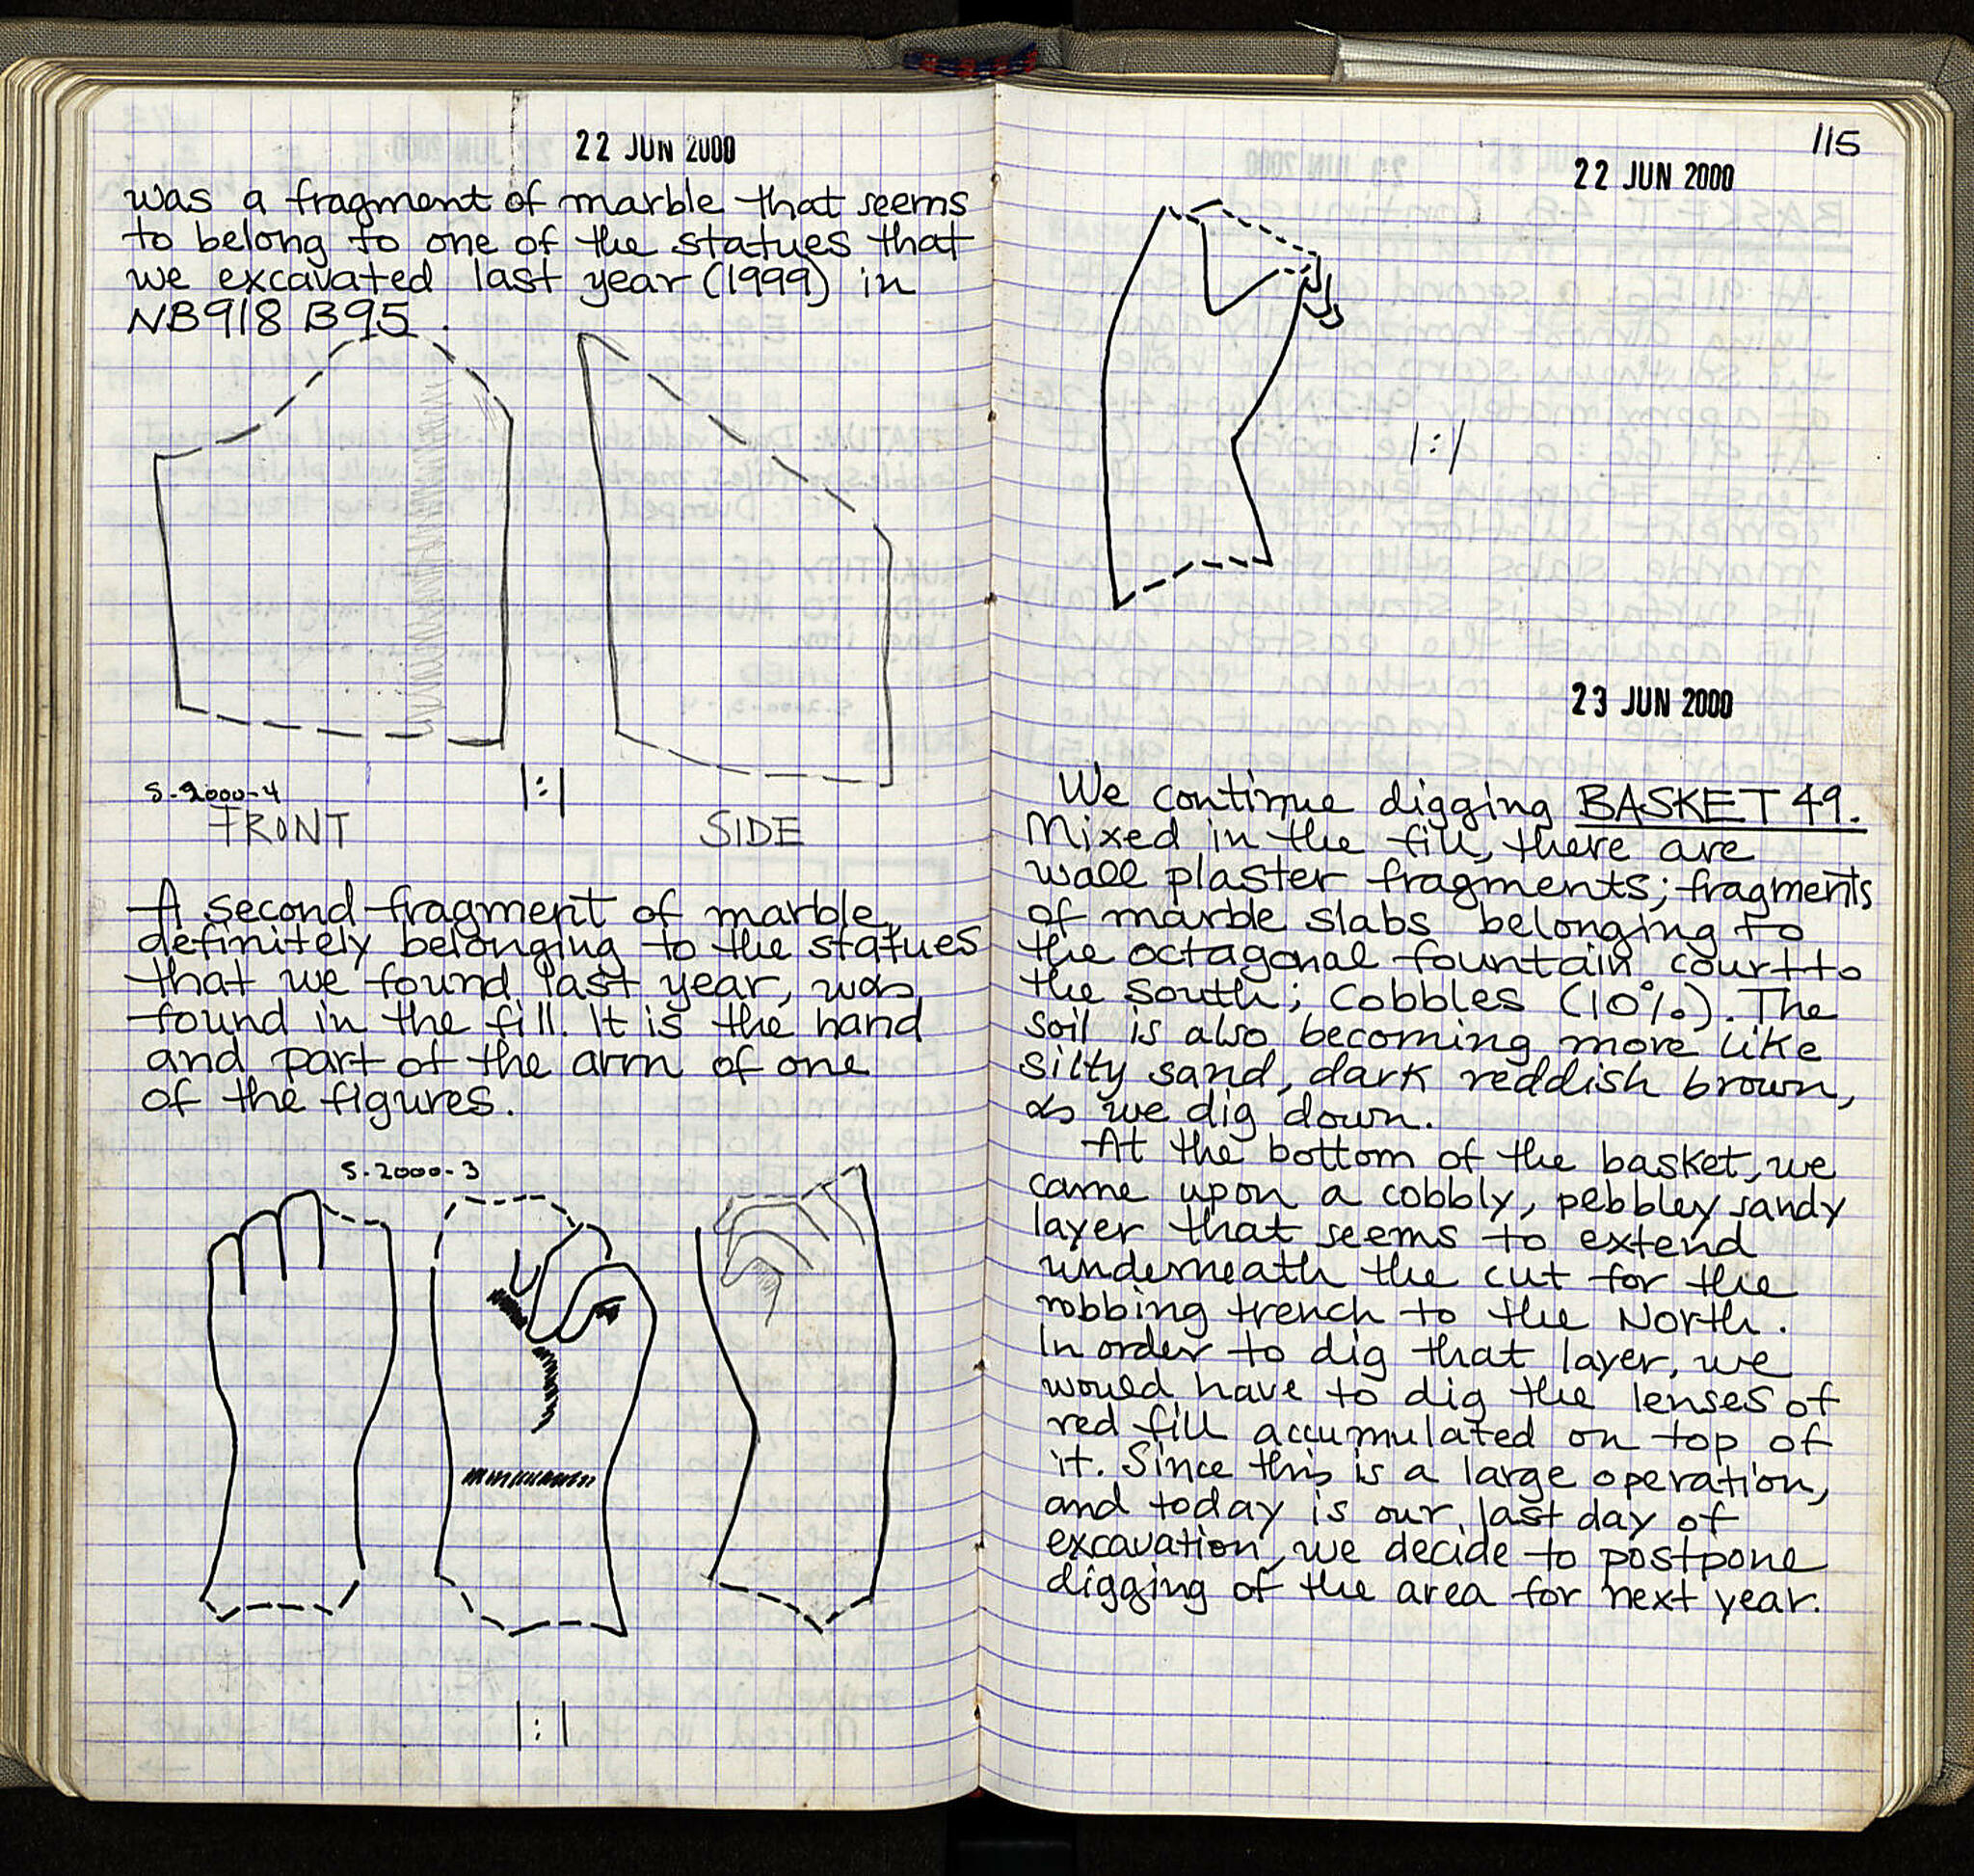 22 JUN 2000
was a fragment of marble that seems
to belong to one of the statues that
we excavated last year (1999) in
NB918 B95.
S-2000-4
1:1
FRONT
SIDE
A second fragment of marble,
definitely belonging to the statues
that we found last year, was
found in the fill. It is the hand
and part of the arm of one
of the figures.
S-2000-3
1:1
115
22 JUN 2000
1:1
23 JUN 2000
We continue digging BASKET 49.
Mixed in the fill, there are
wall plaster fragments; fragments
of marble slabs belonging to
the octagonal fountain court to
the south; cobbles (10%). The
soil is also becoming more like
silty sand, dark reddish brown,
as we dig down.
At the bottom of the basket, we
came upon a cobbly, pebbley sandy
layer that seems to extend
underneath the cut for the
robbing trench to the North.
In order to dig that layer, we
would have to dig the lenses of
red fill accumulated on top of
it. Since this is a large operation,
and today is our last day of
excavation, we decide to postpone
digging of the area for next year.